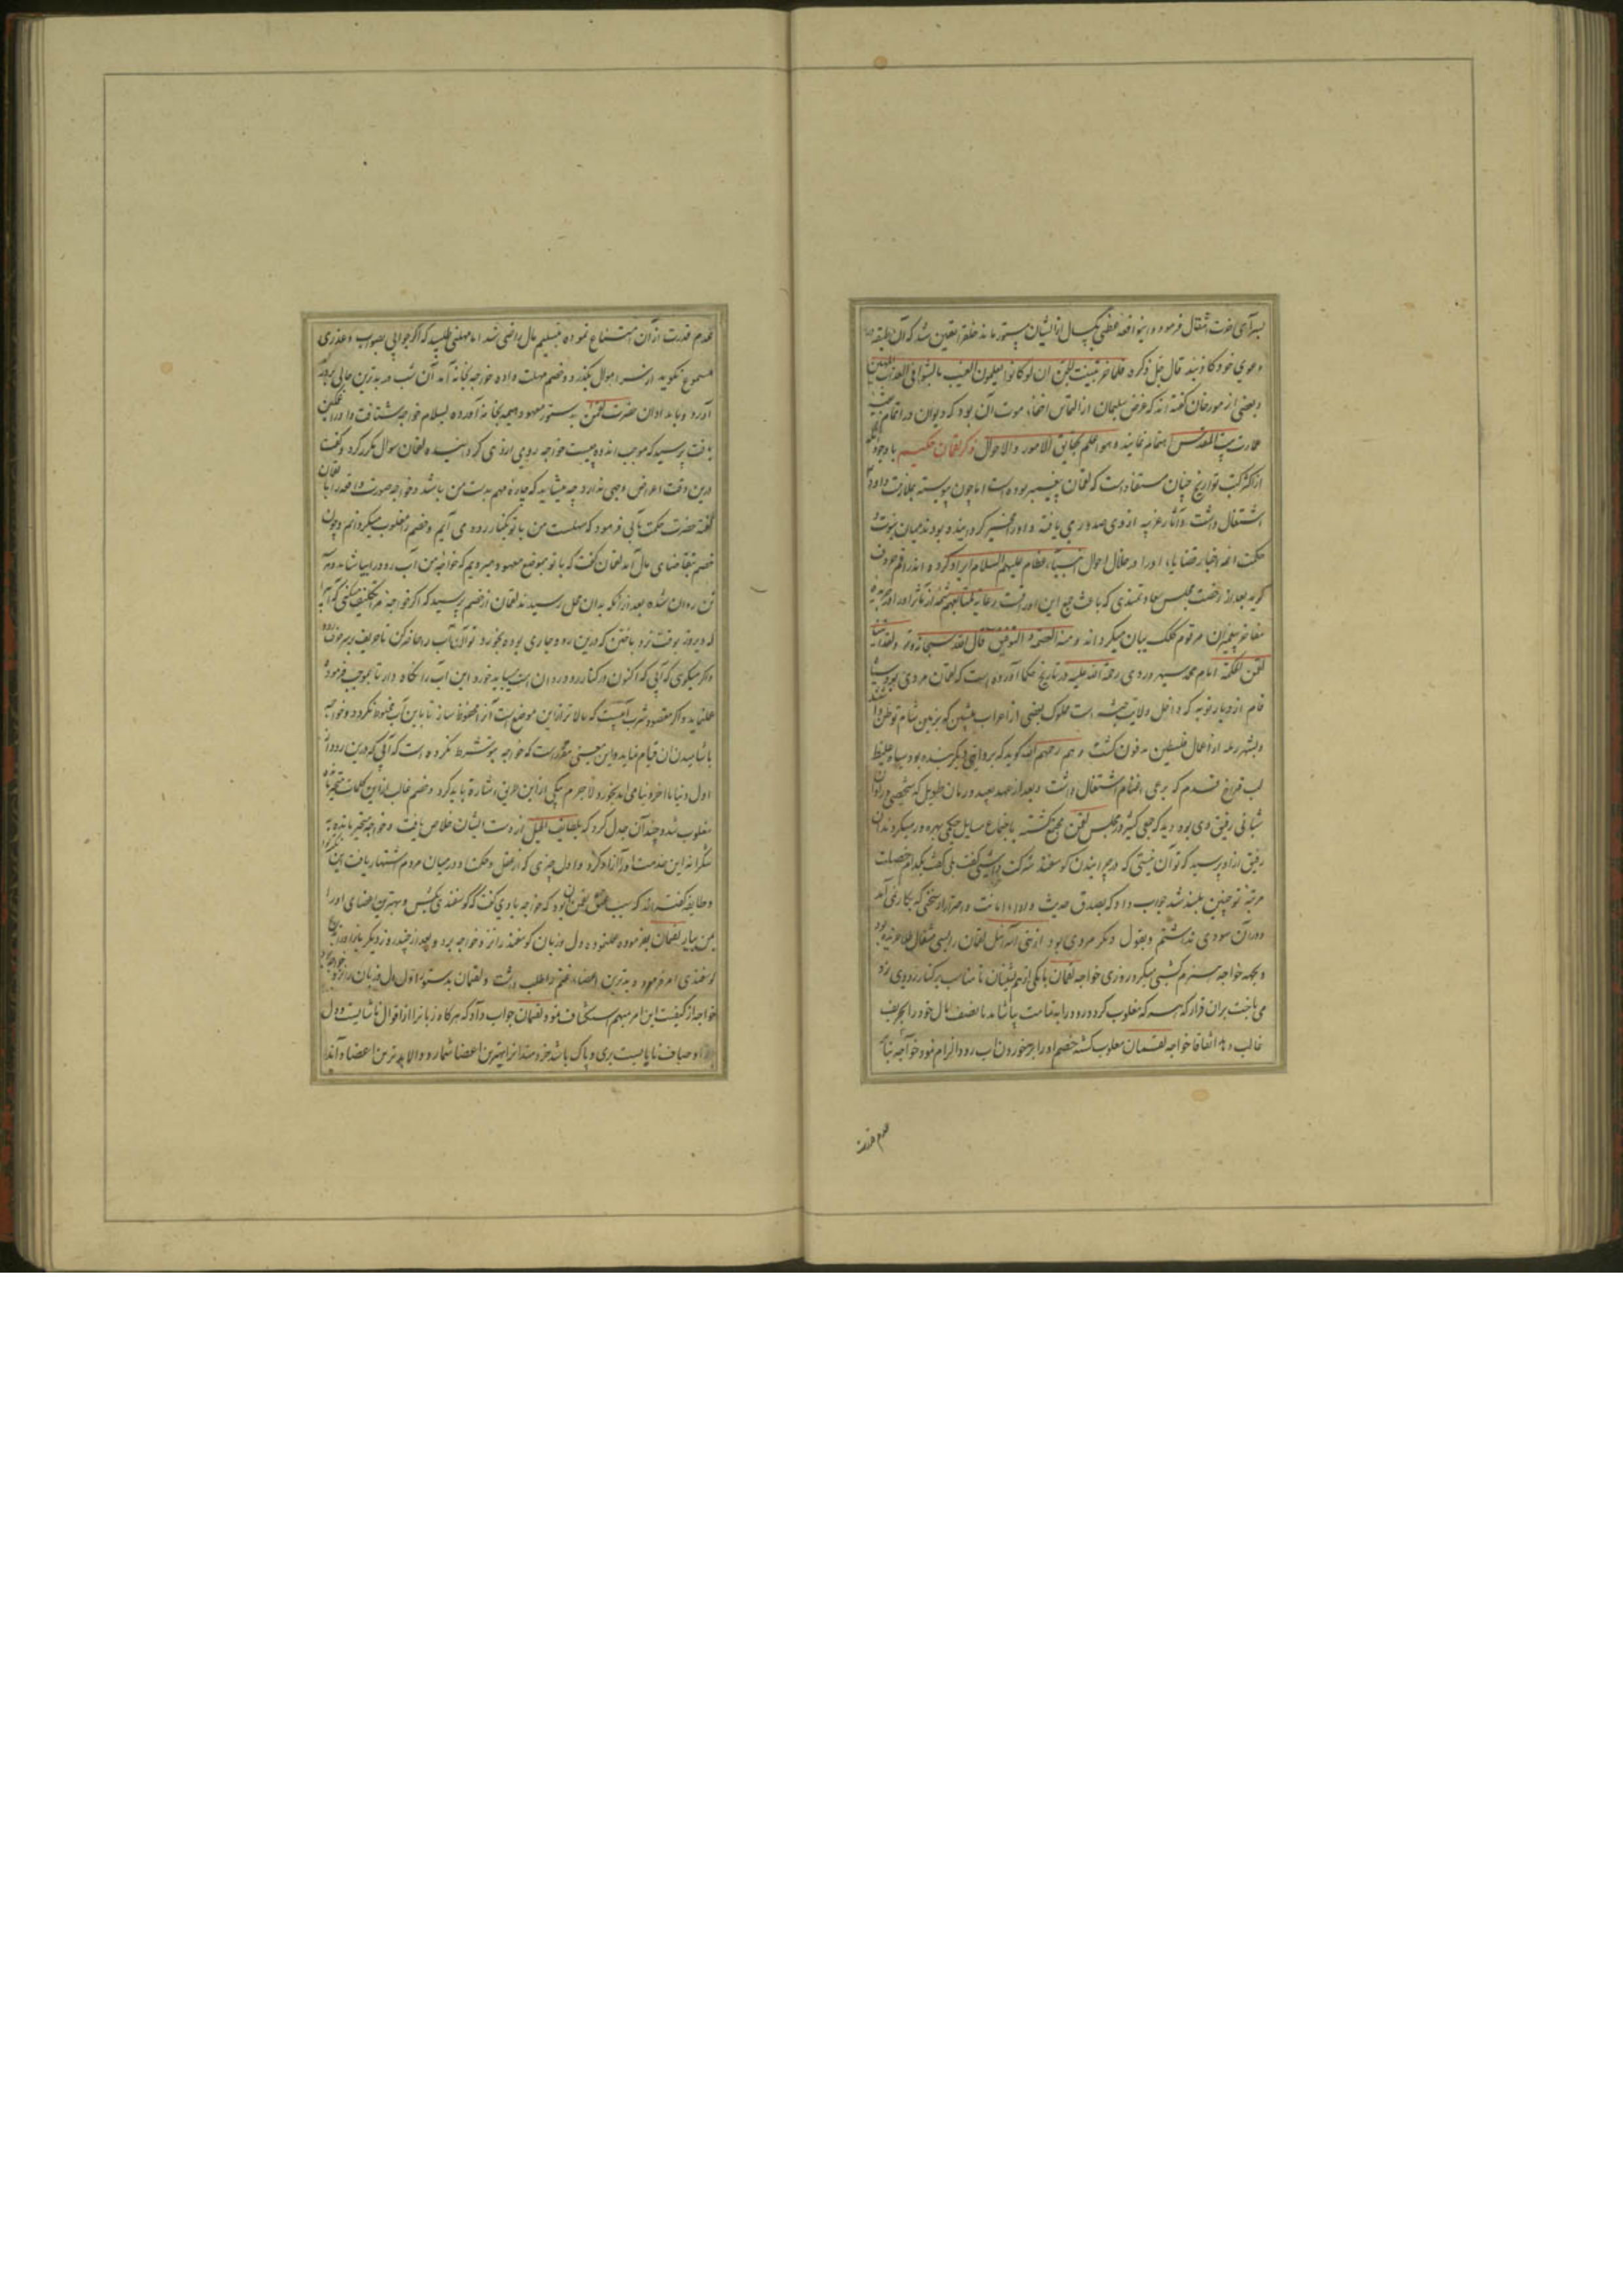 بسرآی آخرت انتقال فرمود و این واقعه عظمی یکسال از ایشان مستور ماند خلق را یقین شد که آن طبقه در
دعوی خود کاذبند قال جل ذکره فلما خر تبینت الجن ان لو کانوا یعلمون الغیب ما لبثوا فی العذاب المهین
و بعضی از مورخان گفته اند که غرض سلیمان از التماس اخفاء موت آن بود که دیوان در اتمام
عمارت بیت المقدس اهتمام نمایند و هو اعلم بحقایق الامور والاحوال ذکر لقمان حکیم با وجود آنکه
از اکثر کتب تواریخ چنان مستفاد است که لقمان پیغمبر نبوده است اما چون پیوسته بملازمت داود
اشتغال داشت و آثار غریبه از وی صدور می یافته و او را مخیر گردانیده بودند میان نبوت و
حکمت ائمه اخبار قضایاء او را در خلال احوال انبیاء عظام علیهم السلام ایراد کرده اند راقم حروف
گوید بعد از رخصت مجلس سعادتمندی که باعث جمع این اوراقست
مفاخر پیغمبران مرقوم کلک بیان میگرداند و منه العصمة و التوفیق قال الله سبحانه و تعالی ولقد آتینا
لقمن الحکمة امام محمد سهروردی رحمة الله علیه در تاریخ حکما آورده است که لقمان مردی بود سیاه
فام از دیار نوبه که داخل ولایت حبشه است مملوک بعضی از اعراب که بزمین شام توطن داشتند
و بشهر رمله از اعمال فلسطین مدفون گشت و هم رحمهم الله گوید که بروایتی دیگر بنده بود سیاه غلیظ
لب که برعی اغنام اشتغال داشت و بعد از عهد بعید و زمان طویل که شخصی در اوان
شبانی رفیق وی بود دید که جمعی کثیر در مجلس لقمن مجتمع گشته باستماع مسایل حکمی بهره ور میکردند آن
رفیق از او پرسید که تو آن نیستی که در چرانیدن گوسفند شرکت داشتی گفت بلی گفت بکدام خصلت
مرتبه تو چنین بلند شد جواب داد که بصدق حدیث و اداء امانت و احتراز از سخنی که بکار نمی آمد
و در آن سودی نداشتم و بقول دیگر مردی بود از بنی اسرائیل لقمان را بسی مثقال طلا خریده بود
و بجهه خواجه هیزم کشی میکرد روزی خواجه لقمان با یکی از هم نشینان برکنار رودی نرد
می باخت بران قرار که هر که مغلوب گردد رود را بتمامت بیاشامد یا نصف مال خود را بحریف
غالب دهد اتفاقا خواجه لقمان مغلوب گشته خصم او را بر خوردن آب رود الزام نمود خواجه بنا بر
عدم قدرت
عدم قدرت از آن امتناع نموده بتسلیم مال راضی شد اما مهلتی طلبید که اگر جوابی بصواب و عذری
مسموع نگوید از سر اموال بگذرد و خصم مهلت داده خواجه بخانه آمد آن شب در بدترین حالی بروز
آورد و بامدادان حضرت لقمن بدستور معهود هیمه بخانه آورده بسلام خواجه شتافت و او را غمگین
یافت پرسید که موجب اندوه چیست خواجه روی از وی گردانیده لقمان سوال مکرر کرد و گفت
درین وقت اعراض وجهی ندارد چه میشاید که چاره مهم بدست من باشد و خواجه صورت واقعه را با لقمان
گفته حضرت حکمت مآبی فرمود که مهلست من با تو بکنار رود می آیم و خصم را مغلوب میگردانم و چون
خصم بتقاضای مال آمد لقمان گفت که با تو بموضع معهود میرویم که خواجه من آب رود را بیاشامد و هر
تن روان شده بعد از آنکه بدان محل رسیدند لقمان از خصم پرسید که اگر خواجه مرا تکلیف میکنی که آبی را
که دیروز بوقت نرد باختن که درین رود جاری بوده بخورد تو آن آب را حاضر کن
و اگر میگوئی که آبی که اکنون در کنار رود روان است میباید خورد این آب را نگاه دار تا بموجب فرموده
عمل نماید و اگر مقصود شرب آبیست که بالاتر ازین موضع است آنرا محفوظ ساز تا باین آب مخلوط نگردد و خواجه
باشامیدن آن قیام نماید و این معنی مقررست که خواجه من شرط نکرده است که آبی که درین رود از
اول دنیا تا آخر دنیا می آید بخورد لاجرم بیکی ازین طریق اشارة باید کرد و خصم غالب ازین کلمات متحیر
مغلوب شد و چندان جدل کرد که بلطایف الحیل از دست ایشان خلاص یافت و خواجه متحیر مانده به
شکرانه این خدمت او را آزاد کرد و اول چیزی که از عقل و حکمت او در میان مردم اشتهار یافت این بود
و طایفه گفته اند که سبب عتق لقمن آن بود که خواجه با وی گفت که گوسفندی بکش و بهترین اعضای او را
بمن بیار لقمان بفرموده عمل نموده دل و زبان گوسفند را نزد خواجه برد و بعد از چند روز دیگر باز او را بذبح
گوسفندی امر فرمود و بدترین اعضاء غنم را طلب داشت و لقمان بدستور اول دل و زبان را نزد خواجه برد
خواجه از کیفیت این امر مبهم استکشاف نمود لقمان جواب داد که هر گاه زبان را از اقوال ناشایست و دل
از اوصاف نابایست بری و پاک باشد خردمندان آنرا بهترین اعضا شمارد و الا بدترین اعضا داند